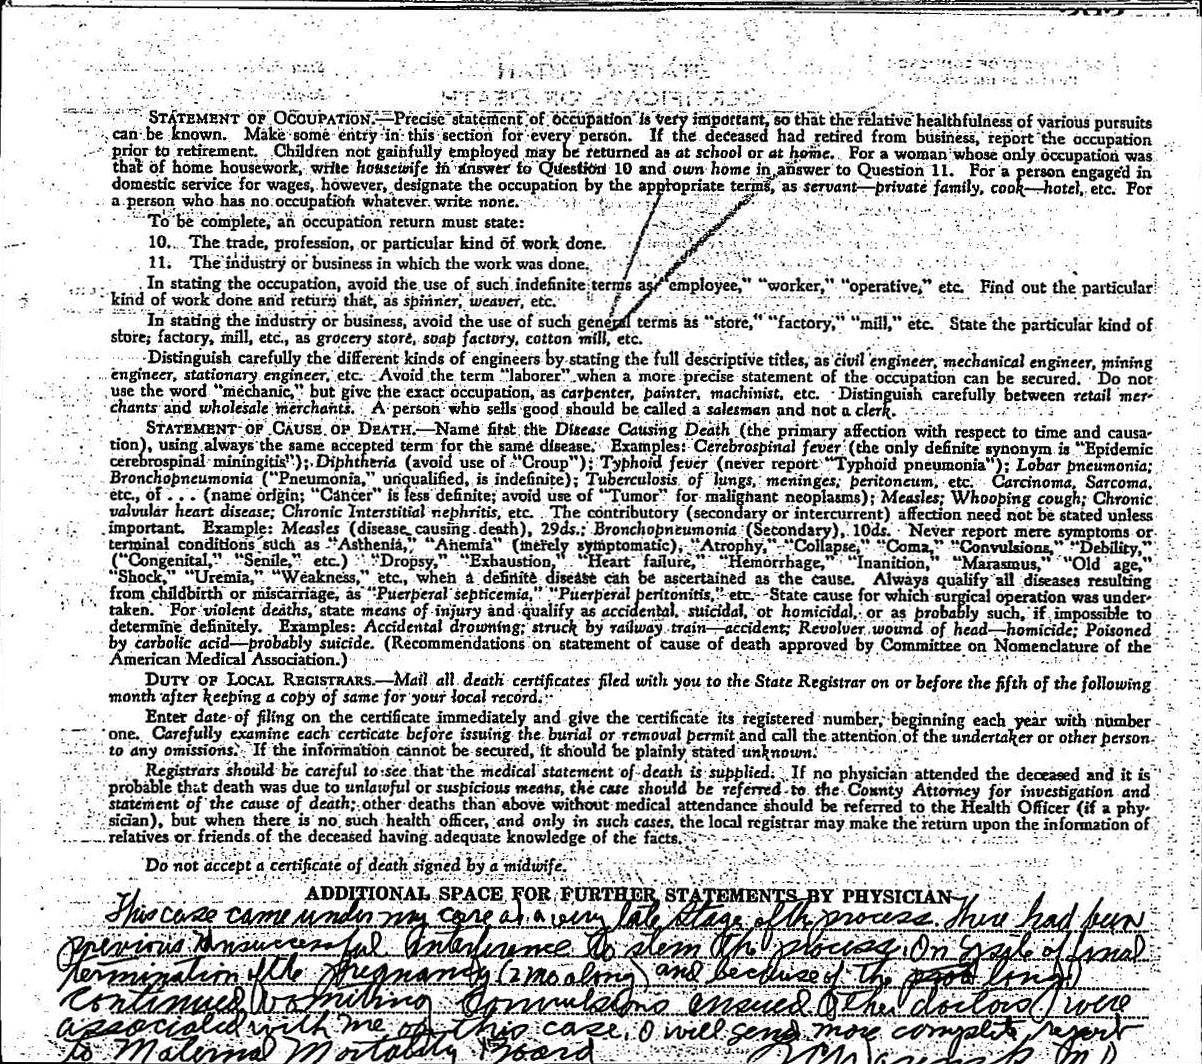 STATE OF UTAH
CERTIFICATE OF DEATH
STATEMENT OF OCCUPATION.—Precise statement of occupation is very important, so that the relative healthfulness of various pursuits
can be known. Make some entry in this section for every person. If the deceased had retired from business, report the occupation
prior to retirement. Children not gainfully employed may be returned as at school or at home. For a woman whose only occupation was
that of home housework, write housewife in answer to Question 10 and own home in answer to Question 11. For a person engaged in
domestic service for wages, however, designate the occupation by the appropriate terms, as servant—private family, cook—hotel, etc. For
a person who has no occupation whatever write none.
To be complete, an occupation return must state:
10. The trade, profession, or particular kind of work done.
11. The industry or business in which the work was done.
In stating the occupation, avoid the use of such indefinite terms as "employee," "worker," "operative," etc. Find out the particular
kind of work done and return that, as spinner, weaver, etc.
In stating the industry or business, avoid the use of such general terms as "store," "factory," "mill," etc. State the particular kind of
store, factory, mill, etc., as grocery store, soap factory, cotton mill, etc.
Distinguish carefully the different kinds of engineers by stating the full descriptive titles, as civil engineer, mechanical engineer, mining
engineer, stationary engineer, etc. Avoid the term "laborer" when a more precise statement of the occupation can be secured. Do not
use the word "mechanic," but give the exact occupation, as carpenter, painter, machinist, etc. Distinguish carefully between retail mer-
chants and wholesale merchants. A person who sells good should be called a salesman and not a clerk.
STATEMENT OF CAUSE OF DEATH.—Name first the Disease Causing Death (the primary affection with respect to time and causa-
tion), using always the same accepted term for the same disease. Examples: Cerebrospinal fever (the only definite synonym is "Epidemic
cerebrospinal miningitis"); Diphtheria (avoid use of "Croup"); Typhoid fever (never report "Typhoid pneumonia"); Lobar pneumonia;
Bronchopneumonia ("Pneumonia," unqualified, is indefinite); Tuberculosis of lungs, meninges, peritoneum, etc. Carcinoma, Sarcoma,
etc., of . . . (name origin; "Cancer" is less definite; avoid use of "Tumor" for malignant neoplasms); Measles; Whooping cough; Chronic
valvular heart disease; Chronic Interstitial nephritis, etc. The contributory (secondary or intercurrent) affection need not be stated unless
important. Example: Measles (disease causing death), 29ds.; Bronchopneumonia (Secondary), 10ds. Never report mere symptoms or
terminal conditions such as "Asthenia," "Anemia" (merely symptomatic), "Atrophy," "Collapse," "Coma," "Convulsions," "Debility,"
("Congenital," "Senile," etc.) "Dropsy," "Exhaustion," "Heart failure," "Hemorrhage," "Inanition," "Marasmus," "Old age,"
"Shock," "Uremia," "Weakness," etc., when a definite disease can be ascertained as the cause. Always qualify all diseases resulting
from childbirth or miscarriage, as "Puerperal septicemia," "Puerperal peritonitis," etc. State cause for which surgical operation was under-
taken. For violent deaths, state means of injury and qualify as accidental, suicidal, or homicidal, or as probably such, if impossible to
determine definitely. Examples: Accidental drowning; struck by railway train—accident; Revolver wound of head—homicide; Poisoned
by carbolic acid—probably suicide. (Recommendations on statement of cause of death approved by Committee on Nomenclature of the
American Medical Association.)
DUTY OF LOCAL REGISTRARS.—Mail all death certificates filed with you to the State Registrar on or before the fifth of the following
month after keeping a copy of same for your local record.
Enter date of filing on the certificate immediately and give the certificate its registered number, beginning each year with number
one. Carefully examine each certicate before issuing the burial or removal permit and call the attention of the undertaker or other person
to any omissions. If the information cannot be secured, it should be plainly stated unknown.
Registrars should be careful to see that the medical statement of death is supplied. If no physician attended the deceased and it is
probable that death was due to unlawful or suspicious means, the case should be referred to the County Attorney for investigation and
statement of the cause of death; other deaths than above without medical attendance should be referred to the Health Officer (if a phy-
sician), but when there is no such health officer, and only in such cases, the local registrar may make the return upon the information of
relatives or friends of the deceased having adequate knowledge of the facts.
Do not accept a certificate of death signed by a midwife.
ADDITIONAL SPACE FOR FURTHER STATEMENTS BY PHYSICIAN
This case came under my care at a very late stage of the process. There had been
previous unsuccessful interference to stem the process. In spite of final
termination of the pregnancy (2 mo along) and because of the long
continued vomiting convulsions ensued. Other doctors were
associated with me on this case. I will send more complete report
to Maternal Mortality Board